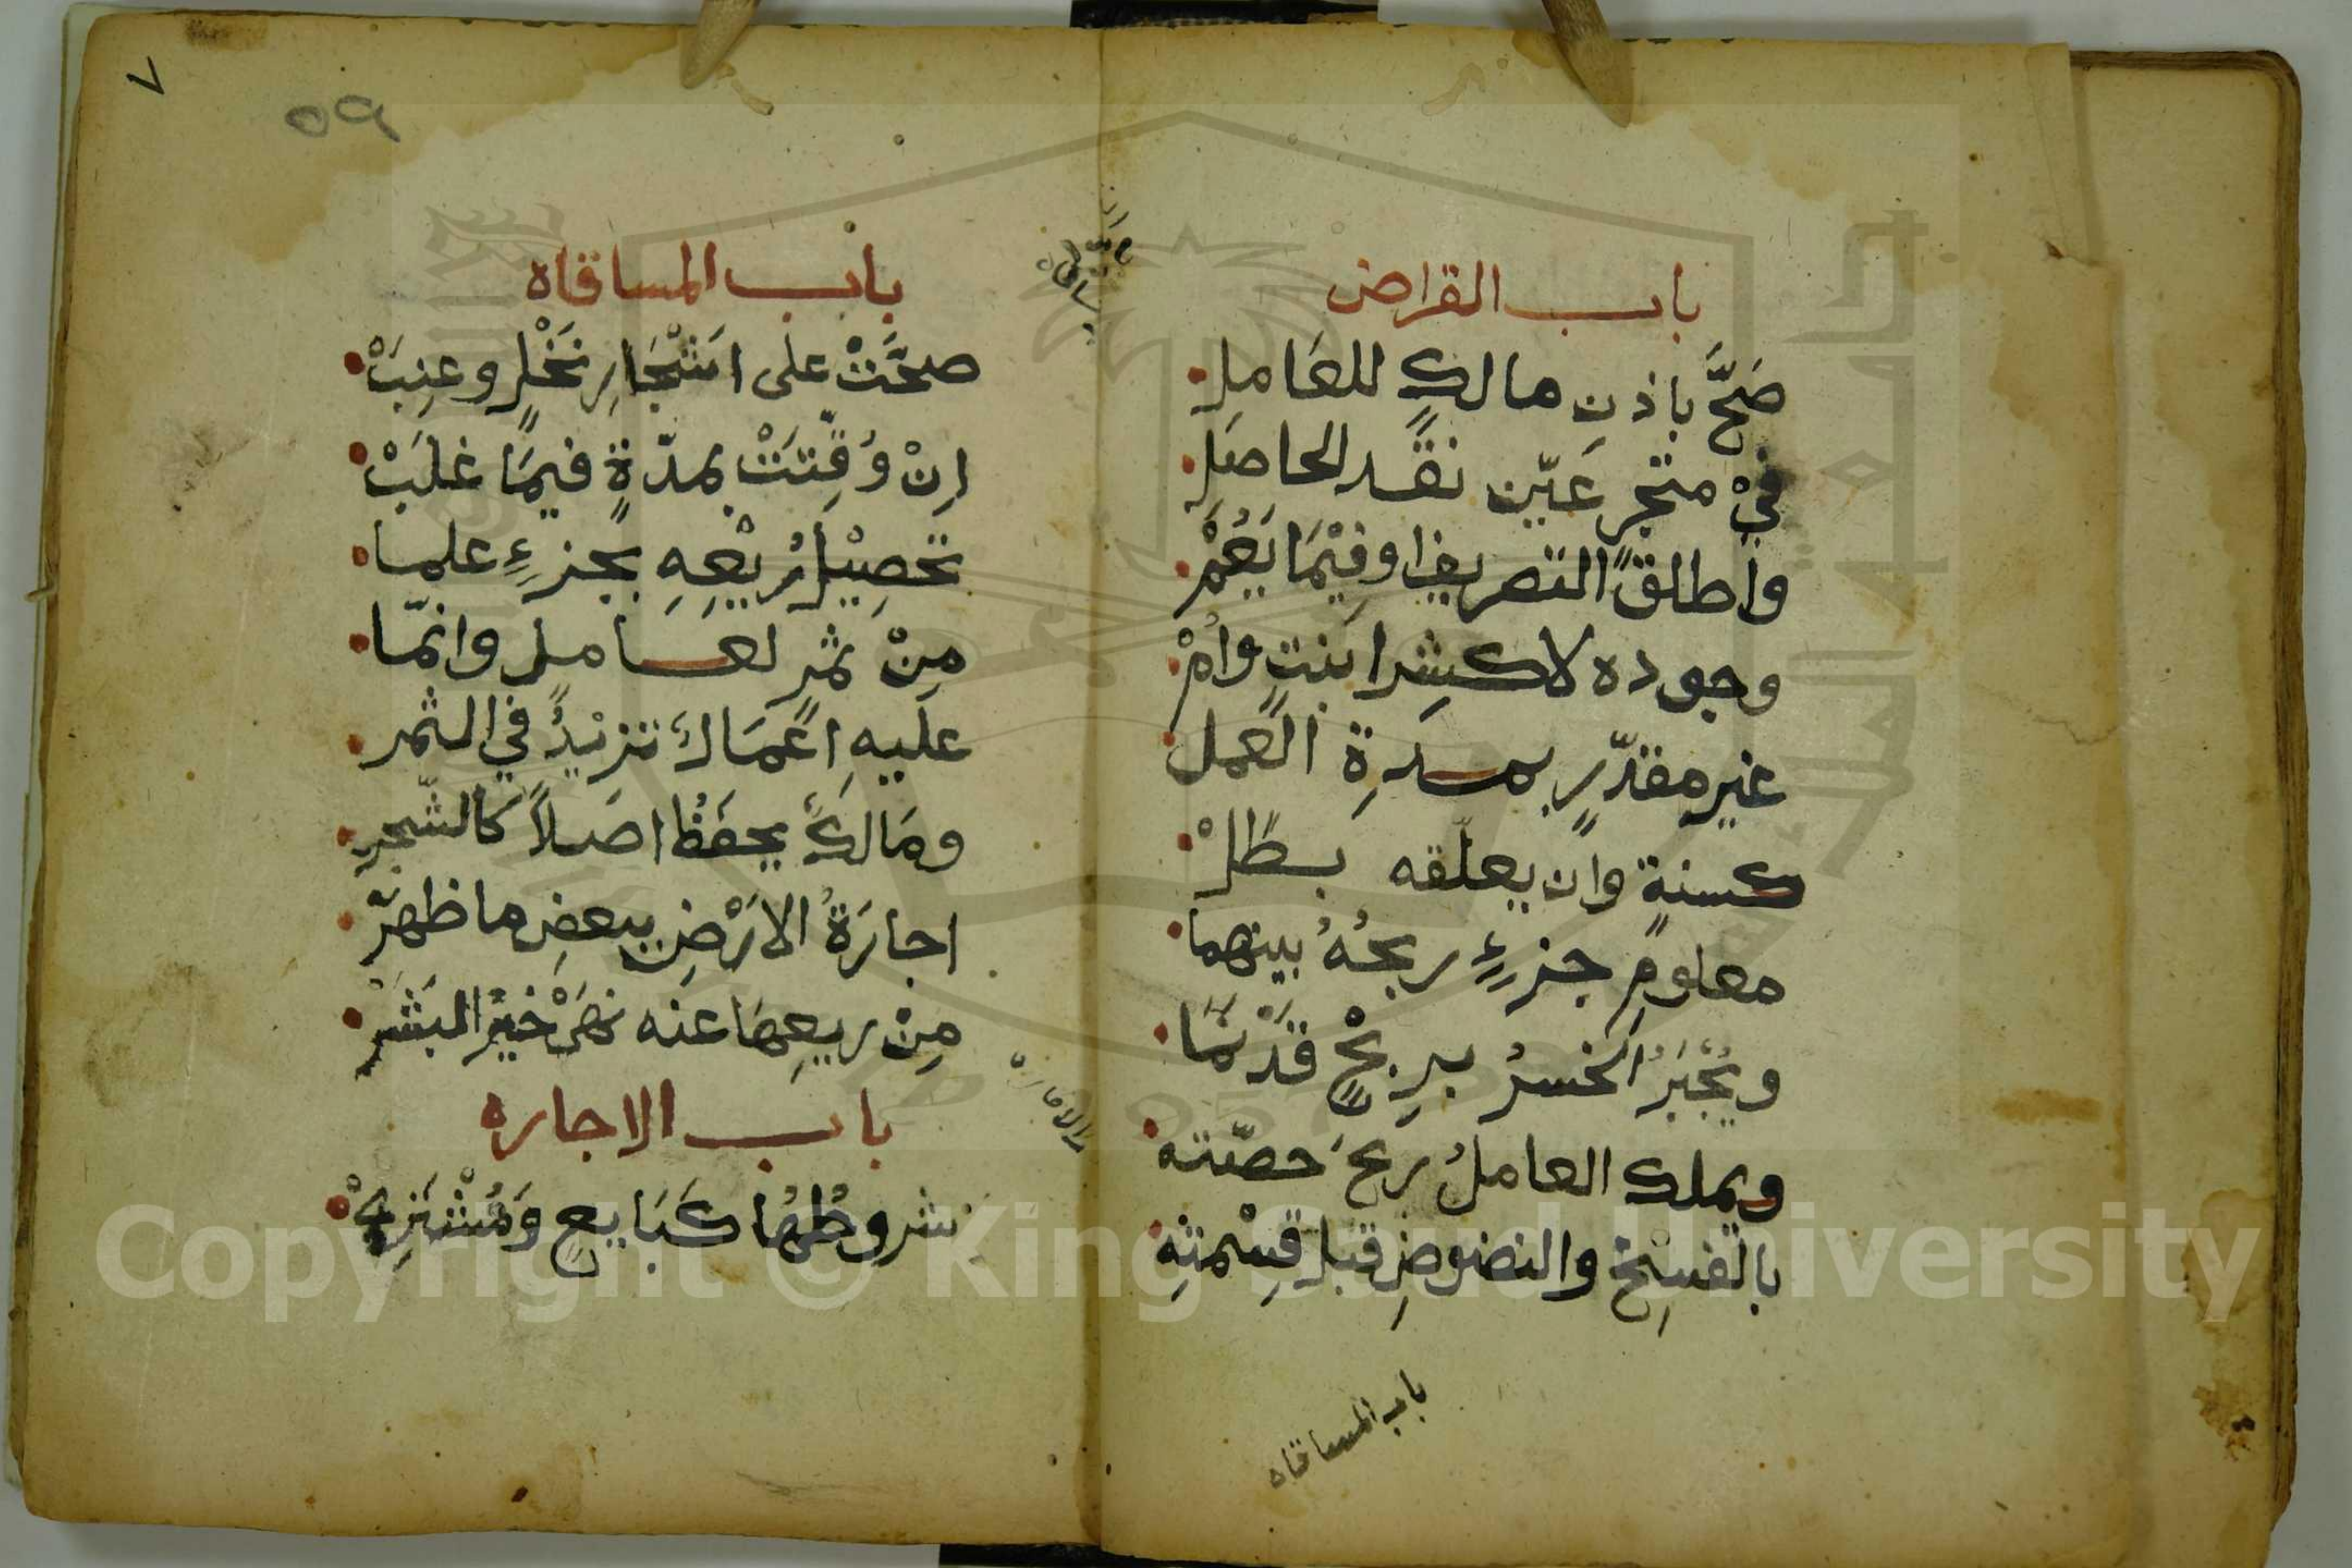 باب القراض
صَحَّ باذنِ مالكٍ للعَامِلِ
فيْ متجرٍ عَيّن نقد الحاصِلِ
واطلقَ التصريفَ اوفِيْمَا يَعُمّْ
وجوده لا كشِرا بنتٍ وامْ
غير مقدّرٍ بمدةِ العمل
كسنةٍ وان يعلّقه بطَلْ
معلومِ جزءٍ ربحُهُ بينهما
ويُجْبَرُ الخسرُ بربحٍ قَدْ نَمَا
ويملك العاملُ ربحَ حصّته
بالفسِخ والنضوضِ قبل قِسْمتِهِ
باب المساقاه
باب المساقاه
صحَّتْ على اشْجَارِ نَخْلٍ وعِنِبَْ
اِنْ وُقِّتَتْ بمدّةٍ فيمَا غلَبَْ
تحصِيْلُ رَيْعِهِ بجزءٍ علما
مِنْ ثمرٍ لعاملٍ وانّما
عليهِ اعْمَالٌ تزيْدُ في الثمر
ومَالكٌ يحفَظُ اصَلاً كالشّجرِ
اجارَةُ الارَْضِ ببعضِ ما ظهرّ
مِنْ ريعِهَا عنه نهَىْ خيرُ البَشَرْ
باب الاجاره
شروطُهُا كبَايعٍ وَمُشْتَرِيْ
٧
٥٩
Copyright © King Saud University